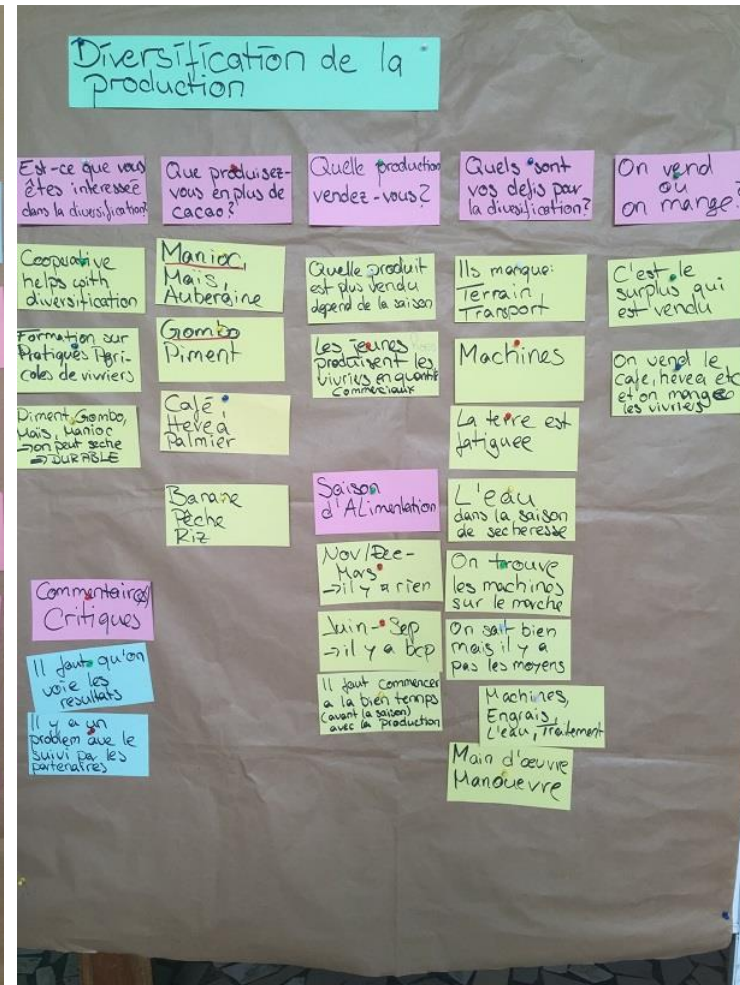 Diversification de la
production
Est-ce que vous
êtes interessée
dans la diversification?
Cooperative
helps with
diversification
Formation sur
Pratiques Agri-
coles de vivriers
Piment, Gombo,
Maïs, Manioc
→ on peut seche
⇒ DURABLE
Commentaire(s)
Critiques
Il faut qu'on
voie les
resultats
Il y a un
problem ave le
suivi par les
partenaires
Que produisez-
vous en plus de
cacao?
Manioc,
Maïs,
Aubergine
Gombo
Piment
Café,
Hevea
Palmier
Banane
Pêche
Riz
Quelle production
vendez-vous?
Quelle produit
est plus vendu
depend de la saison
Les jeunes
produisent les
vivriers en quantité
commerciaux
Saison
d'ALimentation
Nov/Dec-
Mars
→ il y a rien
Juin-Sep
→ il y a bcp
Il faut commencer
a la bien temps
(avant la saison)
avec la production
Quels sont
vos defis pour
la diversification?
Ils manque:
Terrain
Transport
Machines
La terre est
fatiguee
L'eau
dans la saison
de secheresse
On trouve
les machines
sur le marche
On sait bien
mais il y a
pas les moyens
Machines,
Engrais,
L'eau, Traitement
Main d'œuvre
Manouevre
On vend
ou
on mange?
C'est le
surplus qui
est vendu
On vend le
cafe, hevea etc
et on mange
les vivriers